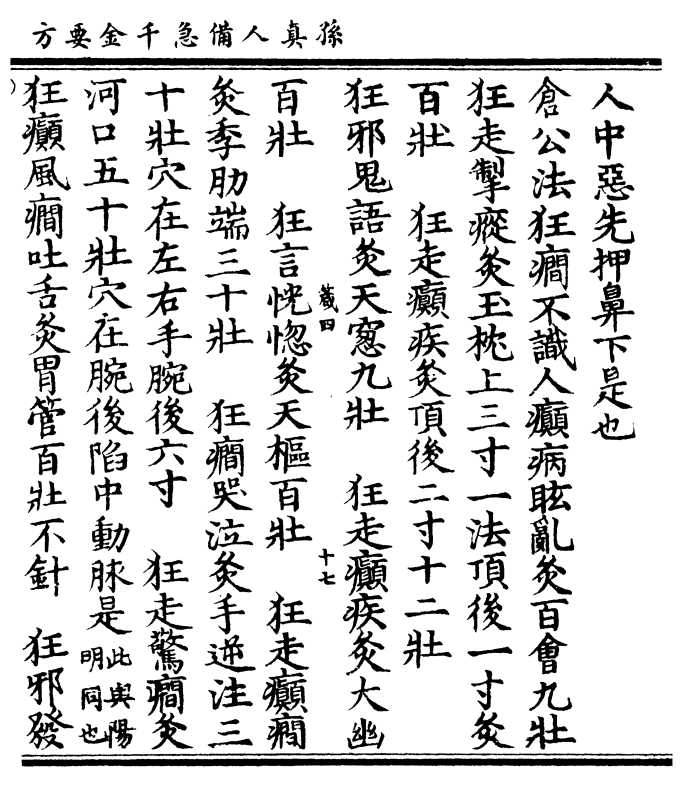 孫真人備急千金要方
人中惡先押鼻下是也
倉公法狂癇不識人癲病眩亂灸百會九壯
狂走掣瘲灸玉枕上三寸一法頂後一寸灸
百壯　狂走癲疾灸頂後二寸十二壯
狂邪鬼語灸天窻九壯　狂走癲疾灸大幽
藏四
十七
百壯　狂言恍惚灸天樞百壯　狂走癲癇
灸季肋端三十壯　狂癇哭泣灸手逆注三
十壯穴在左右手腕後六寸　狂走驚癇灸
河口五十壯穴在腕後陷中動脉是此與陽明同也
狂癲風癇吐舌灸胃管百壯不針　狂邪發